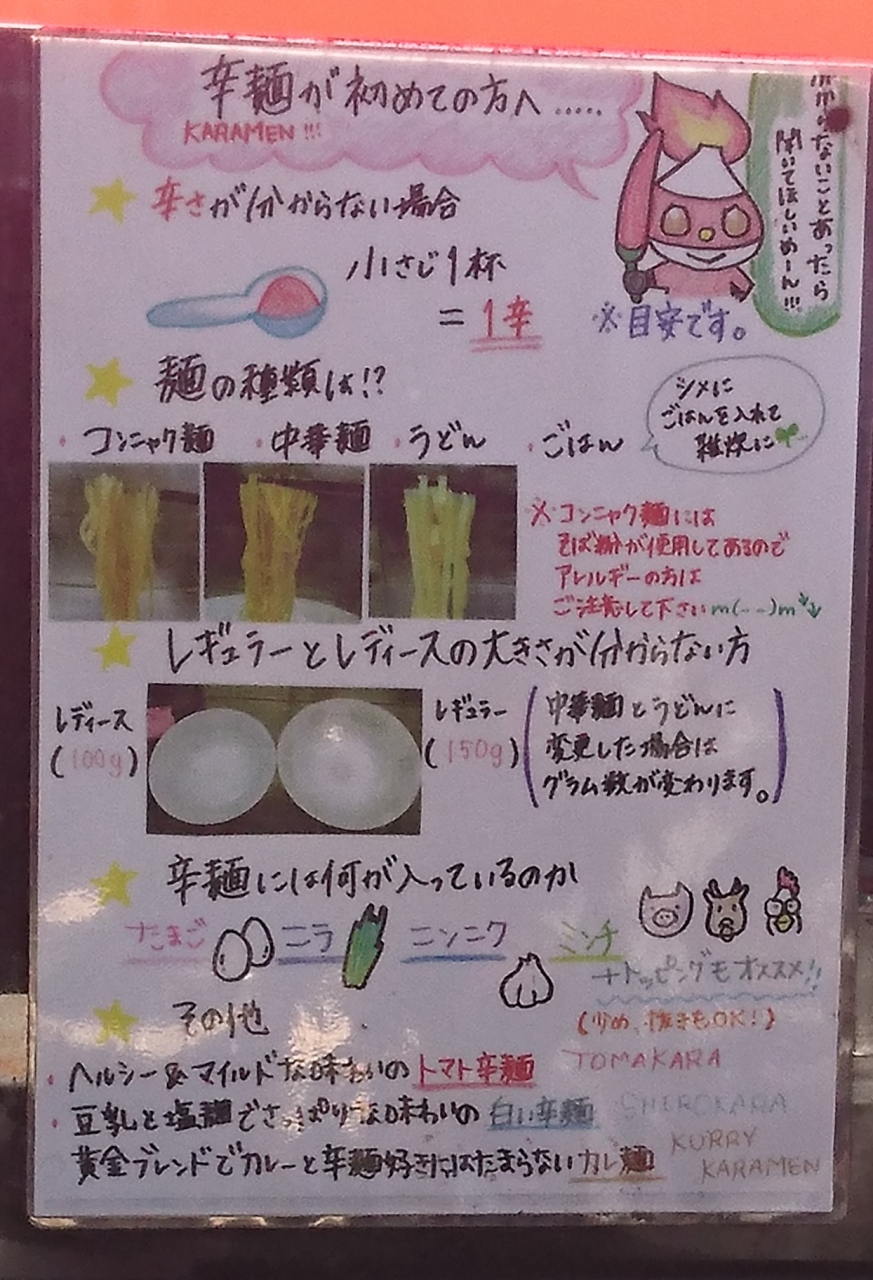 辛麺が初めての方へ.....
KARAMEN!!!
わからないことあったら
聞いてほしいめーん!!!
辛さが分からない場合
小さじ1杯
=1辛
※目安です。
麺の種類は!?
・コンニャク麺 ・中華麺 ・うどん ・ごはん
シメに
ごはんを入れて
雑炊に
※コンニャク麺には
そば粉が使用してあるので
アレルギーの方は
ご注意して下さいm(--)m
レギュラーとレディースの大きさが分からない方
レディース
(100g)
レギュラー
(150g)
(中華麺とうどんに
変更した場合は
グラム数が変わります。)
辛麺には何が入っているのか
たまご ニラ ニンニク ミンチ
+トッピングもオススメ!!
(少め、抜きもOK!)
その他
・ヘルシー&マイルドな味わいのトマト辛麺 TOMAKARA
・豆乳と塩麹でさっぱりな味わいの白い辛麺 SHIROKARA
黄金ブレンドでカレーと辛麺好きにはたまらないカレ麺 KURRY
KARAMEN